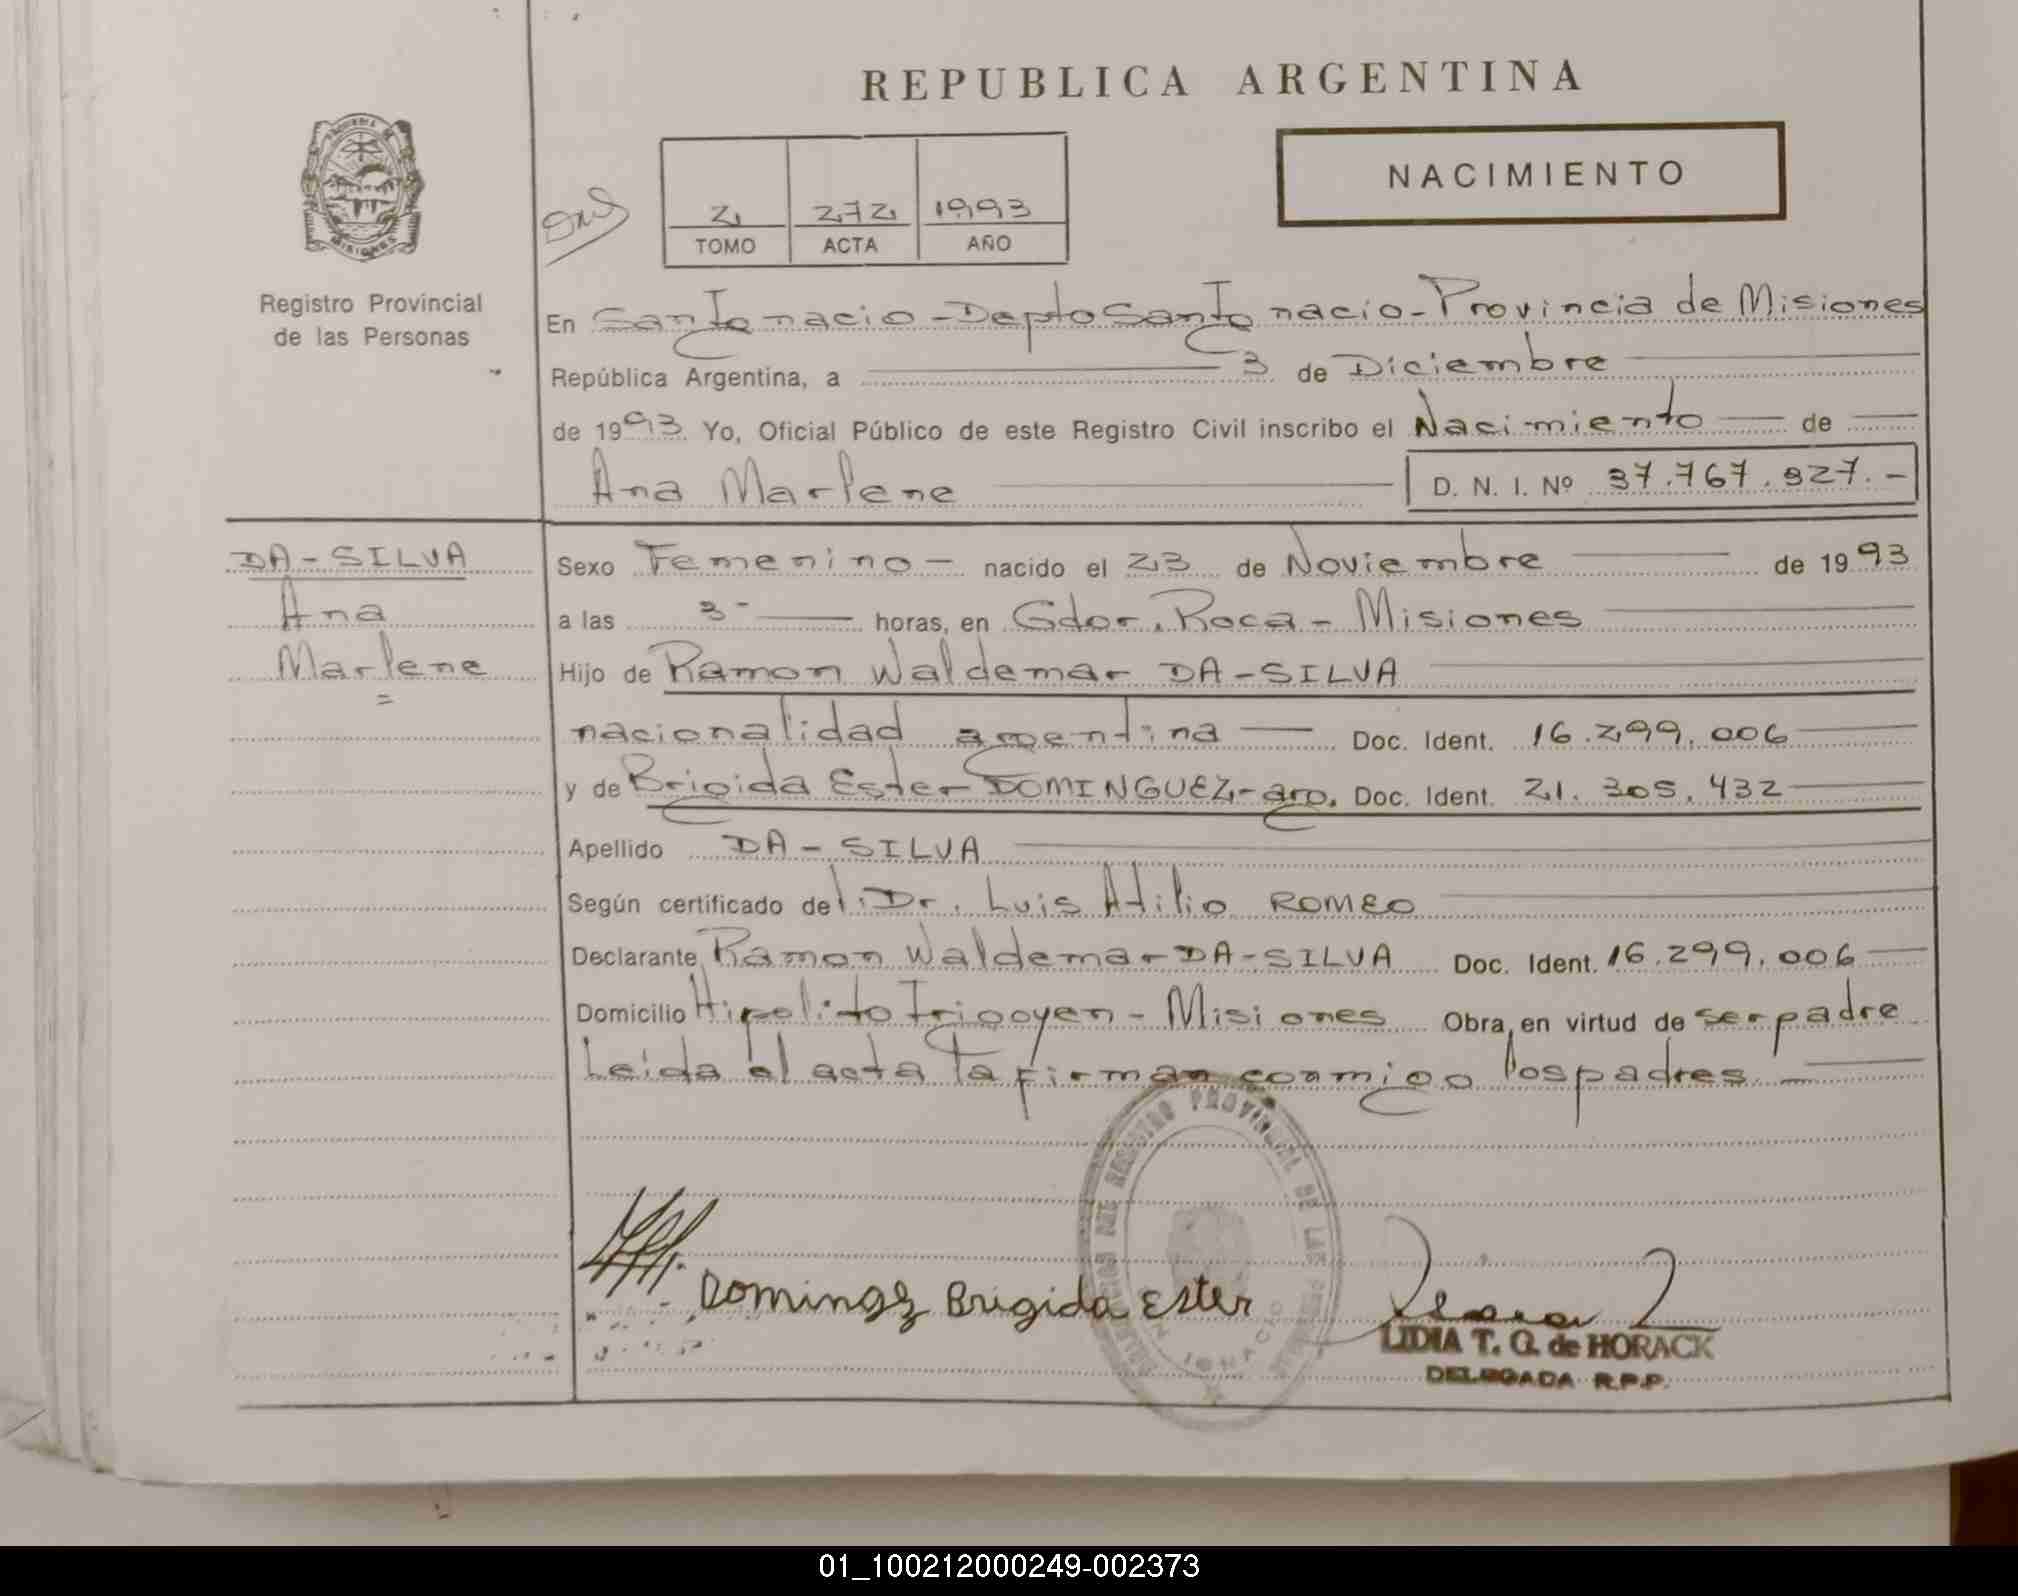 REPUBLICA ARGENTINA
NACIMIENTO
2 272 1993
TOMO ACTA AÑO
MISIONES
Registro Provincial
de las Personas
En San Ignacio - Depto San Ignacio - Provincia de Misiones
República Argentina, a 3 de Diciembre
de 1993 Yo, Oficial Público de este Registro Civil inscribo el Nacimiento de
Ana Marlene D. N. I. Nº 37.767.827.-
DA-SILVA
Ana
Marlene
=
Sexo Femenino - nacido el 23 de Noviembre de 1993
a las 3- horas, en Gdor. Roca - Misiones
Hijo de Ramon Waldemar DA-SILVA
nacionalidad argentina Doc. Ident. 16.299.006
y de Brigida Ester DOMINGUEZ-arg. Doc. Ident. 21.305.432
Apellido DA-SILVA
Según certificado del. Dr. Luis Atilio ROMEO
Declarante Ramon Waldemar DA-SILVA Doc. Ident. 16.299.006
Domicilio Hipolito Irigoyen - Misiones Obra en virtud de ser padre
Leida el acta la firman conmigo los padres
REGISTRO PROVINCIAL DE LAS PERSONAS
IGNACIO
Domingz Brigida Ester
LIDIA T. G. de HORACK
DELEGADA R.P.P.
01_100212000249-002373